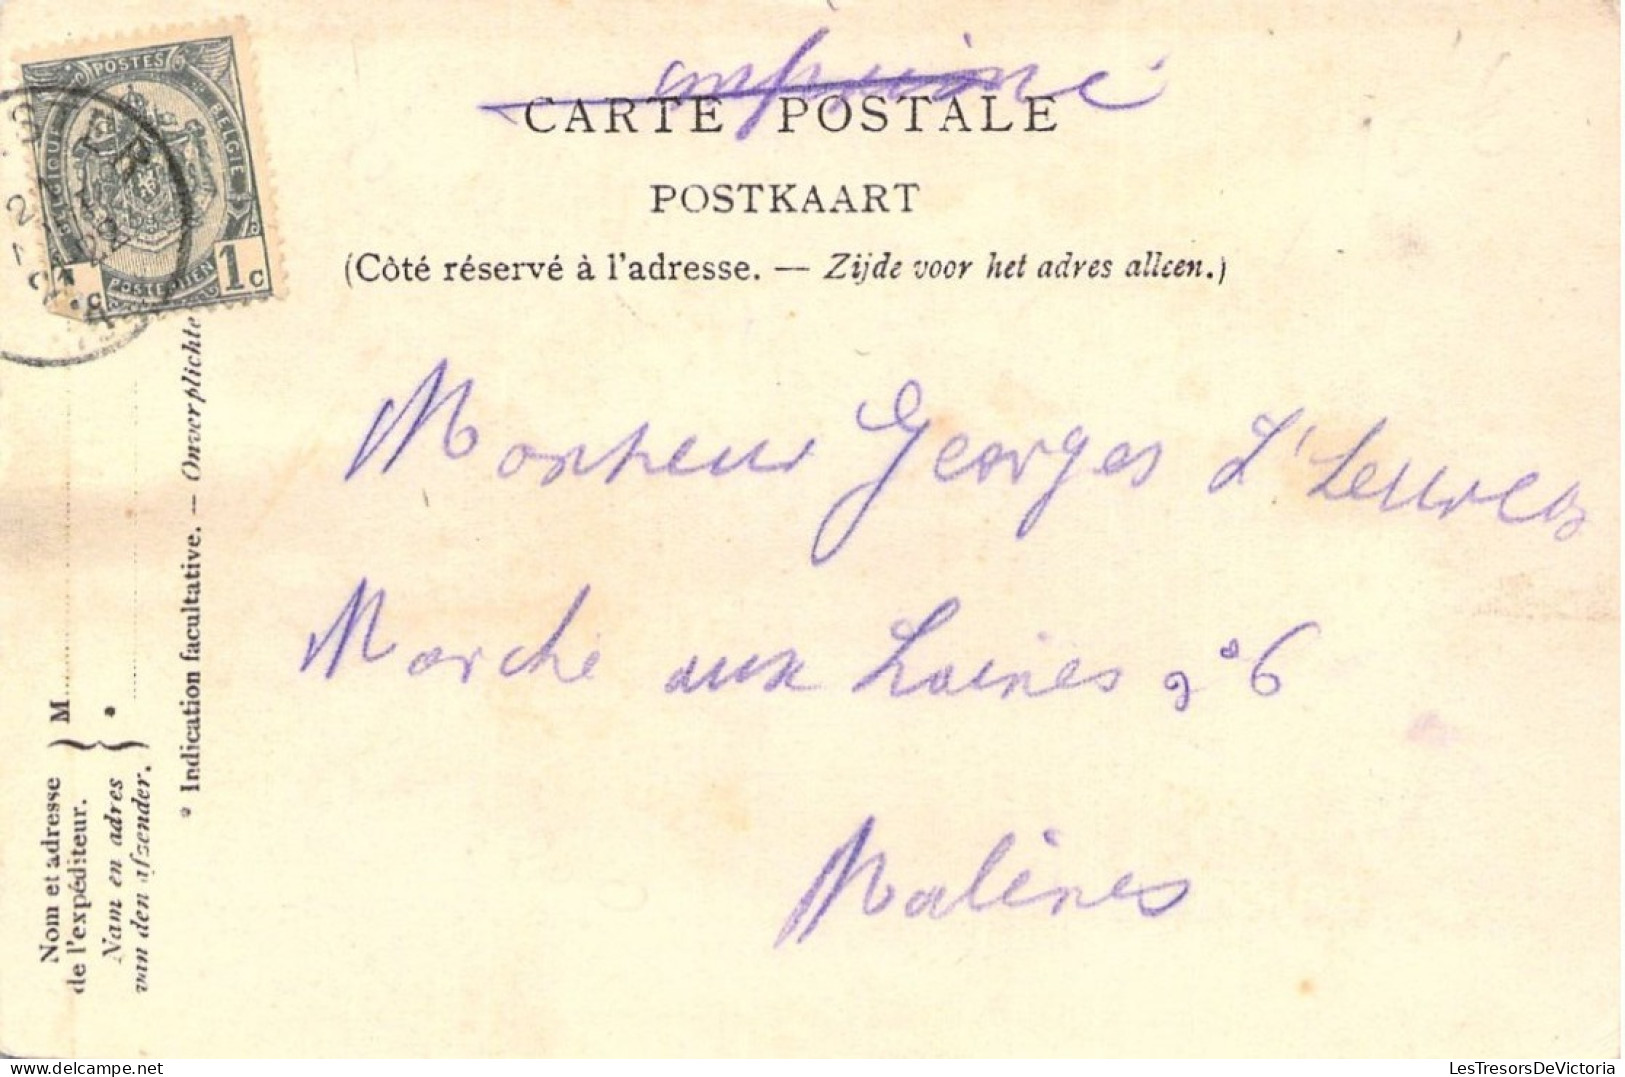 imprimé
CARTE POSTALE
POSTKAART
(Côté réservé à l'adresse. — Zijde voor het adres alleen.)
POSTES
BELGIQUE
BELGIE
POSTERIJEN
1c
Monsieur Georges
Marché aux Laines n° 6
Malines
Nom et adresse
de l'expéditeur.
Nam en adres
van den afzender.
M
*
* Indication facultative. — Onverplichte
LesTresorsDeVictoria